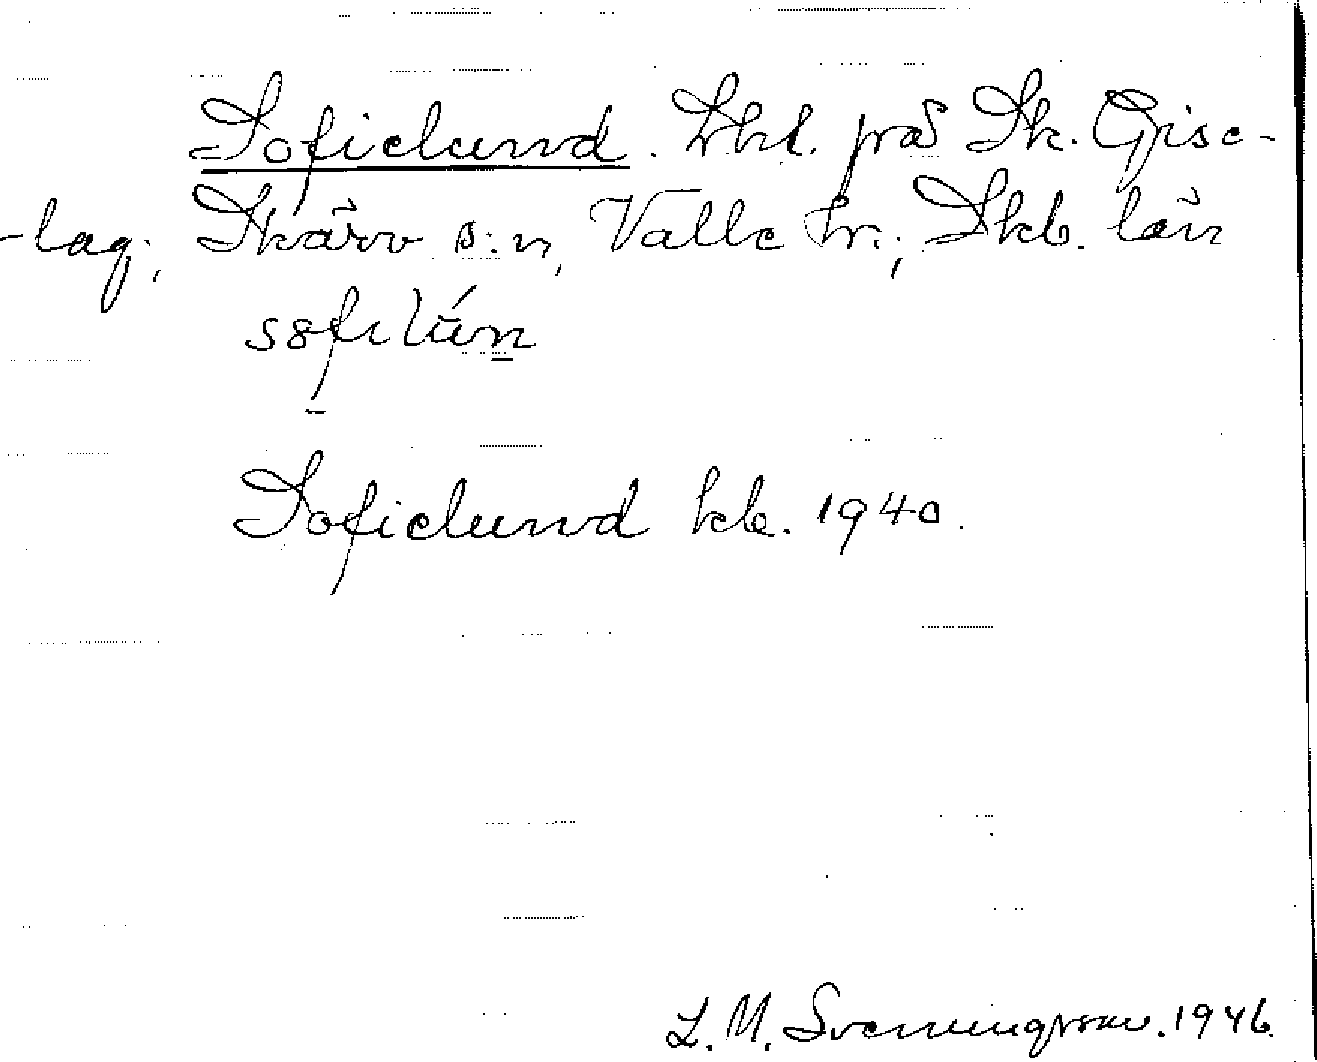 Sofielund. Lht. på Sk. Gise-
-lag; Skärv s:n, Valle hr.; Skb. län
Sofielund kb. 1940.
L. M. Svenungsson. 1946.